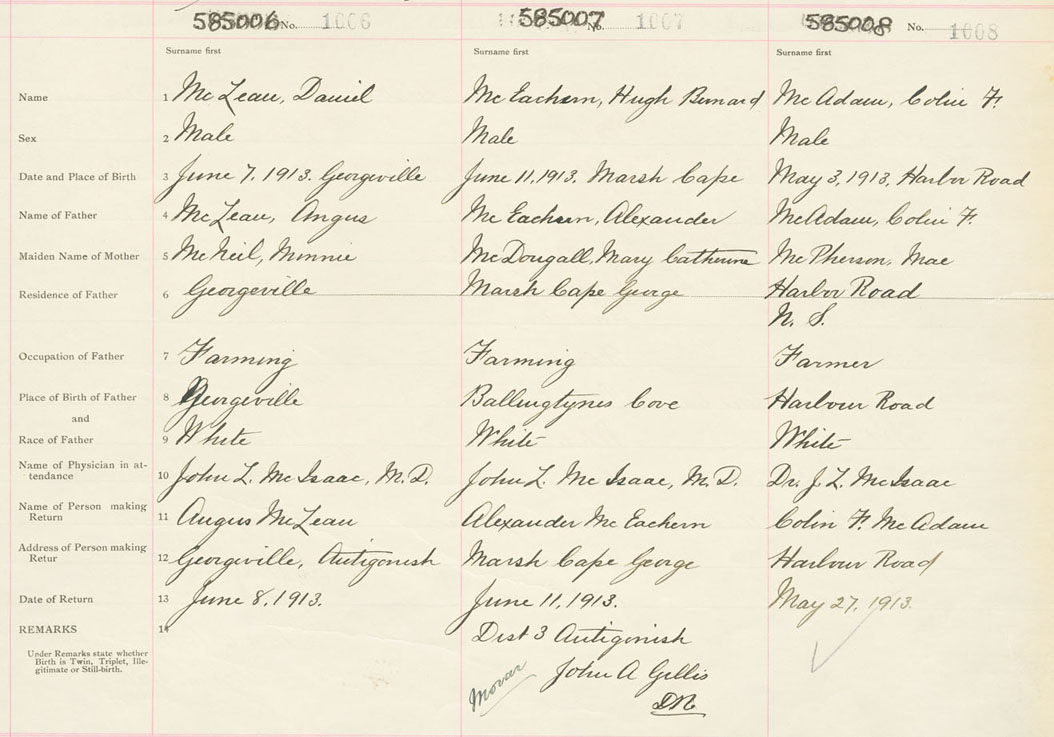 585006 No. 1006 585007 No. 1007 585008 No. 1008
Surname first Surname first Surname first
Name 1 McLean, Daniel McEachern, Hugh Bernard McAdam, Colin F.
Sex 2 Male Male Male
Date and Place of Birth 3 June 7, 1913. Georgeville June 11, 1913. Marsh Cape May 3, 1913, Harbor Road
Name of Father 4 McLean, Angus McEachern, Alexander McAdam, Colin F.
Maiden Name of Mother 5 McNeil, Minnie McDougall, Mary Catherine McPherson, Mae
Residence of Father 6 Georgeville Marsh Cape George Harbor Road
N. S.
Occupation of Father 7 Farming Farming Farmer
Place of Birth of Father 8 Georgeville Ballingtynes Cove Harbour Road
and
Race of Father 9 White White White
Name of Physician in at-
tendance 10 John L. McIsaac, M.D. John L. McIsaac, M.D. Dr. J. L. McIsaac
Name of Person making
Return 11 Angus McLean Alexander McEachern Colin F. McAdam
Address of Person making
Retur 12 Georgeville, Antigonish Marsh Cape George Harbour Road
Date of Return 13 June 8, 1913. June 11, 1913. May 27, 1913.
REMARKS 14 Dist 3 Antigonish
Under Remarks state whether
Birth is Twin, Triplet, Ille-
gitimate or Still-birth.
John A Gillis
DR